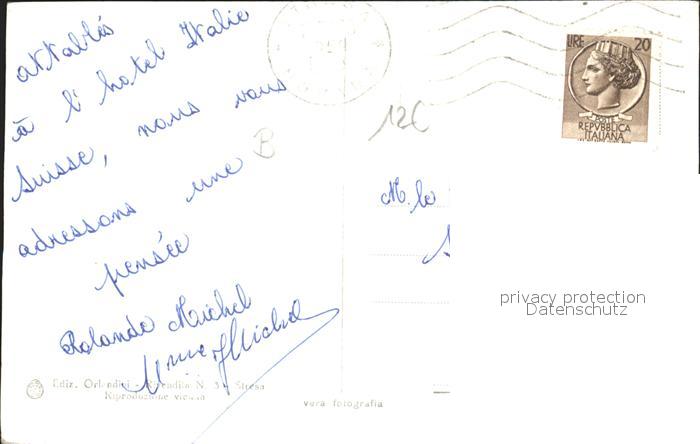 attablés
à l'hotel Italie
Suisse, nous vous
adressons une
pensée
Rolande Michel
Mme Michel
B
12€
LIRE 20
POSTE
REPVBBLICA
ITALIANA
M. le
privacy protection
Datenschutz
Ediz. Orlandini - Rivendita N. 3 - Stresa
Riproduzione vietata
vera fotografia